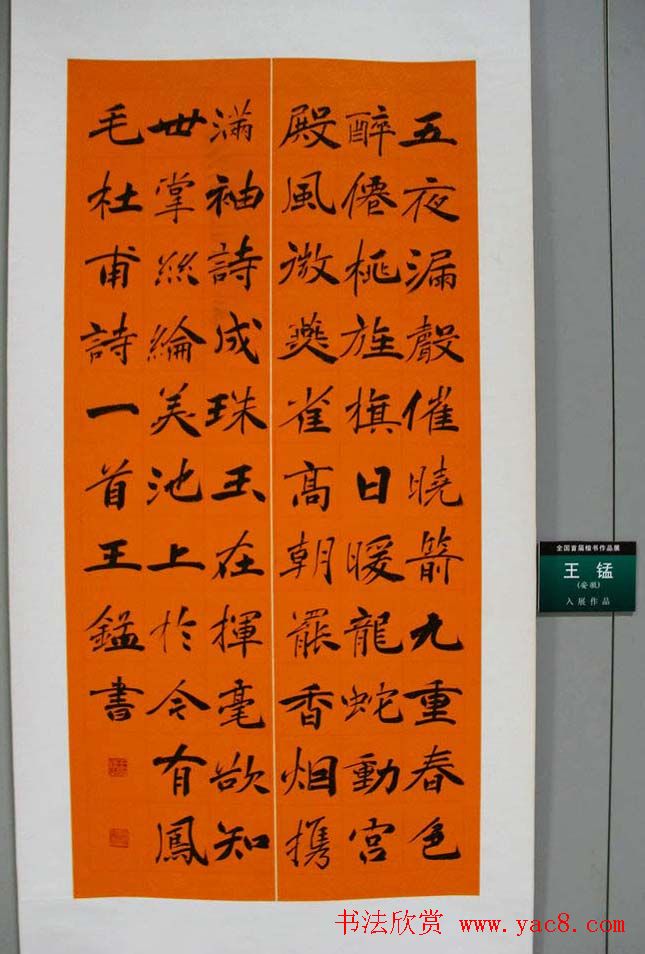 五夜漏聲催曉箭九重春色
醉僊桃旌旗日暖龍蛇動宮
殿風微燕雀高朝罷香烟携
滿袖詩成珠玉在揮毫欲知
世掌絲綸美池上於今有鳳
毛杜甫詩一首王錳書
全国首届楷书作品展
王 锰
(安徽)
入展作品
书法欣赏 www.yac8.com